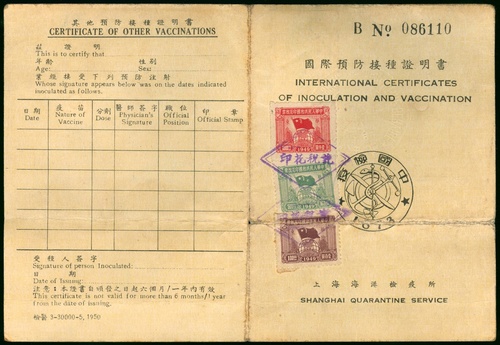 其他預防接種證明書
CERTIFICATE OF OTHER VACCINATIONS
茲證明
This is to certify that
年齡 性別
Age: Sex:
業經接受下列預防注射
Whose signature appears below was on the dates indicated
inoculated as follows.
日期 疫苗 分劑 醫師簽字 職位 印章
Date Nature of Vaccine Dose Physician's Signature Official Position Official Stamp
受種人簽字
Signature of person Inoculated:
日期
Date of Issuing:
注意:本證書自頒發之日起六個月/一年內有效
This certificate is not valid for more than 6 months/1 year
from the date of issuing.
檢醫 3-30000-5, 1950
B No 086110
國際預防接種證明書
INTERNATIONAL CERTIFICATES
OF INOCULATION AND VACCINATION
1949
印花稅訖
1949
1949
中國檢疫
1873
上海海港檢疫所
SHANGHAI QUARANTINE SERVICE